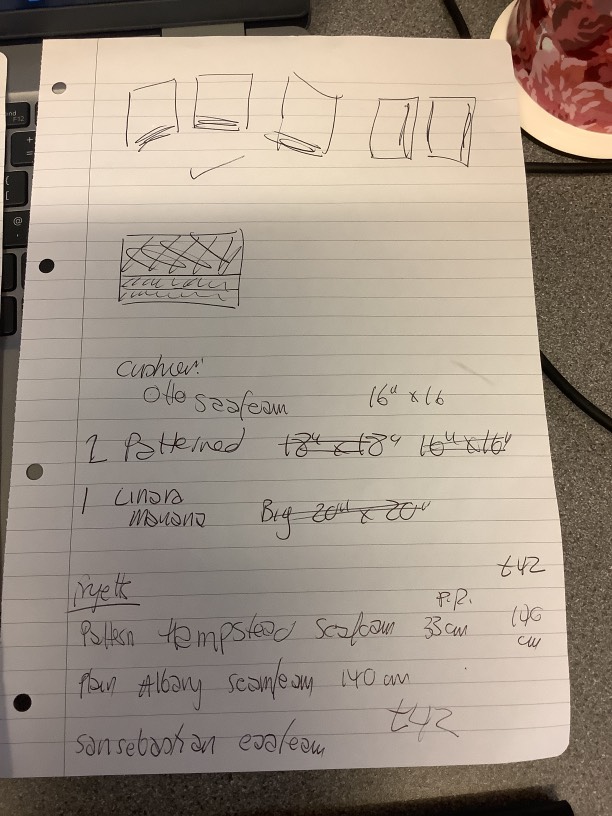 cushion:
Otto seafoam 16" x 16
2 Patterned 18" x 18" 16" x 16"
1 Linara
Big 20" x 20"
t42
P.R.
Pattern Hempstead Seafoam 33cm 140
cm
Plain Albany seamfeam 140 cm
t42
sansebastian eaafeam